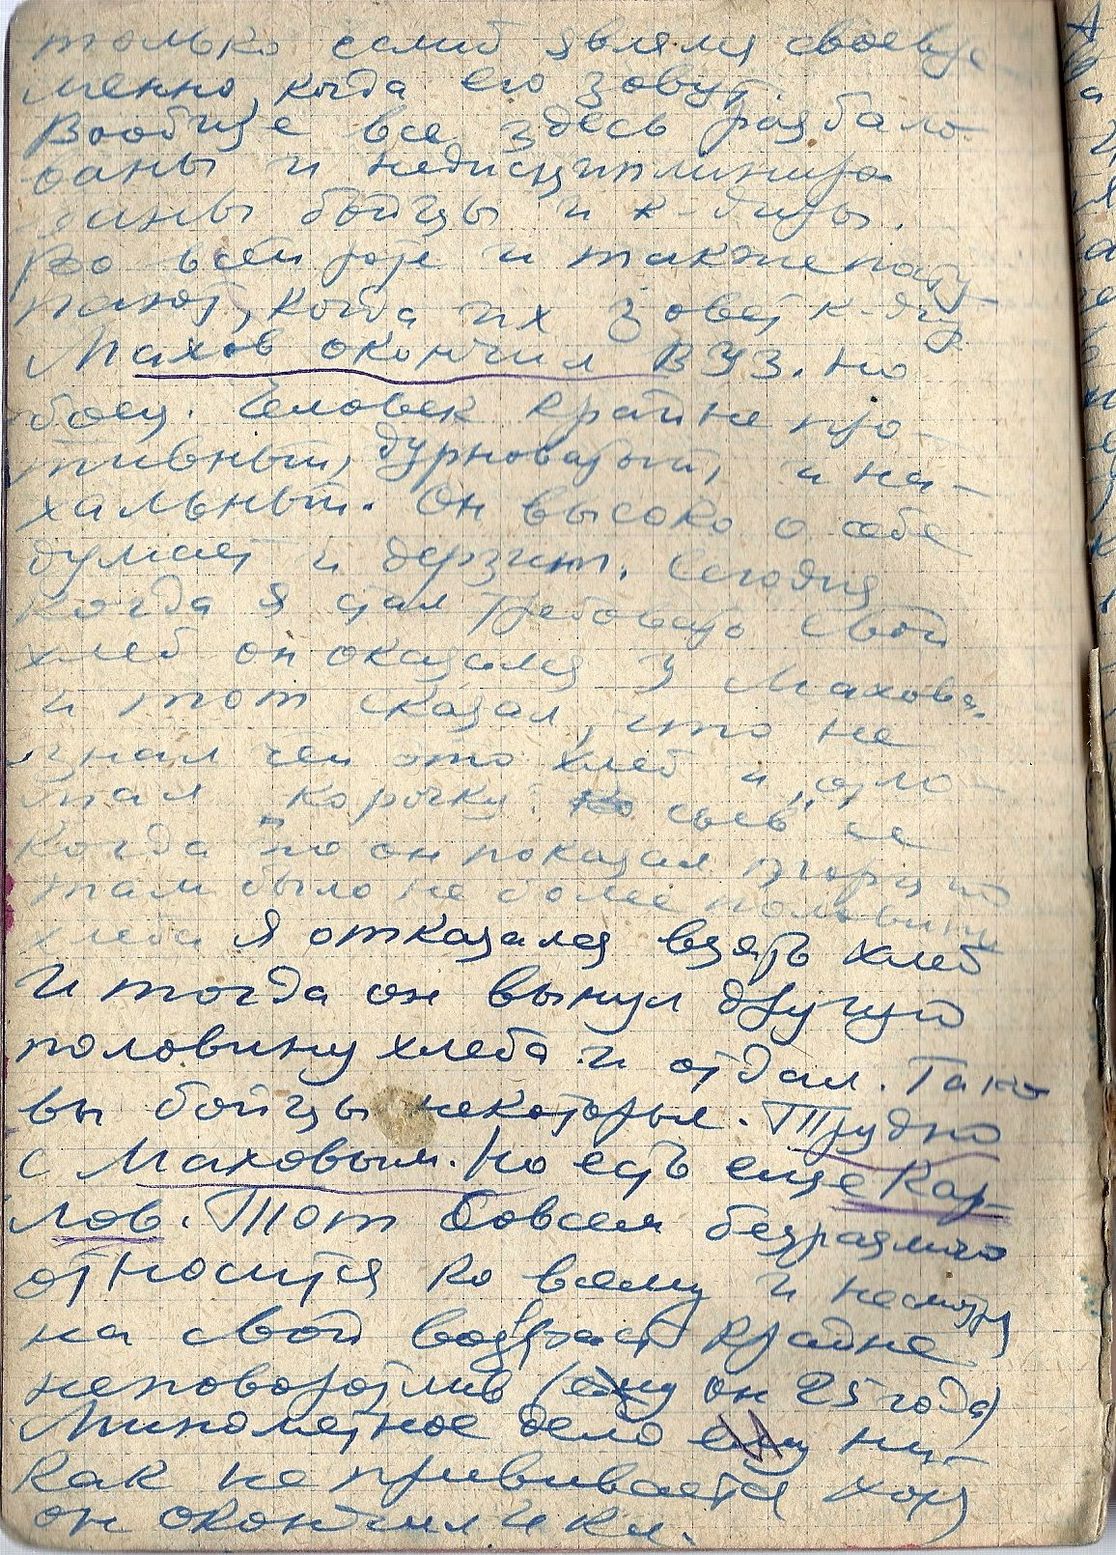 только если б являлся своевре-
менно, когда его зовут.
Вообще все здесь разбало
ваны и недисциплиниро
ваны бойцы и к-диры.
Во всей роте и также посту
пают, когда их зовет к-дир
Махов окончил ВУЗ. но
боец. Человек крайне про-
тивный, дурноватый, и на-
хальный. Он высоко о себе
думает и дерзит. Сегодня
когда я стал требовать свой
хлеб он оказался у Махова,
и тот сказал, что не
знал чей это хлеб и „отло-
мал корочку" съев ее
Когда то он показал что
там было не более половины
хлеба Я отказался взять хлеб
И тогда он вынул другую
половину хлеба и отдал. Тако
вы бойцы некоторые. Трудно
с Маховым. Но есть еще Кар-
лов. Тот Совсем безразлично
относится ко всему и несмотря
на свой возраст крайне
неповоротлив (ему он 25 года)
Минометное дело ему ни-
как не прививается хотя
он окончил 4 кл.